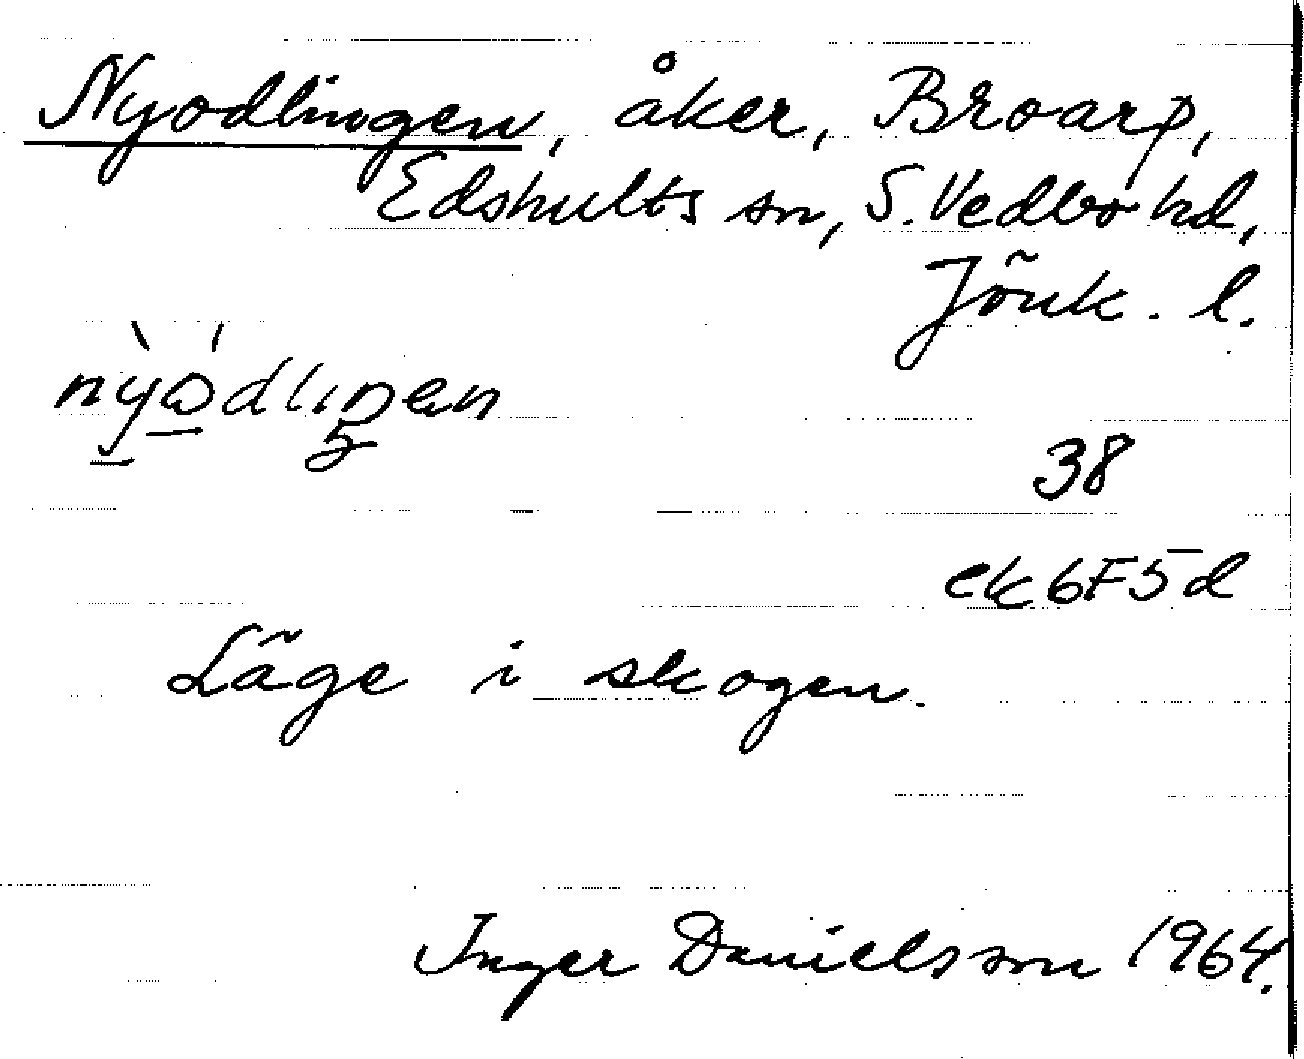 Nyodlingen, åker, Broarp,
Edshults sn, S. Vedbo hd,
Jönk. l.
38
ek 6F5d
Läge i skogen.
Inger Danielsson 1964.